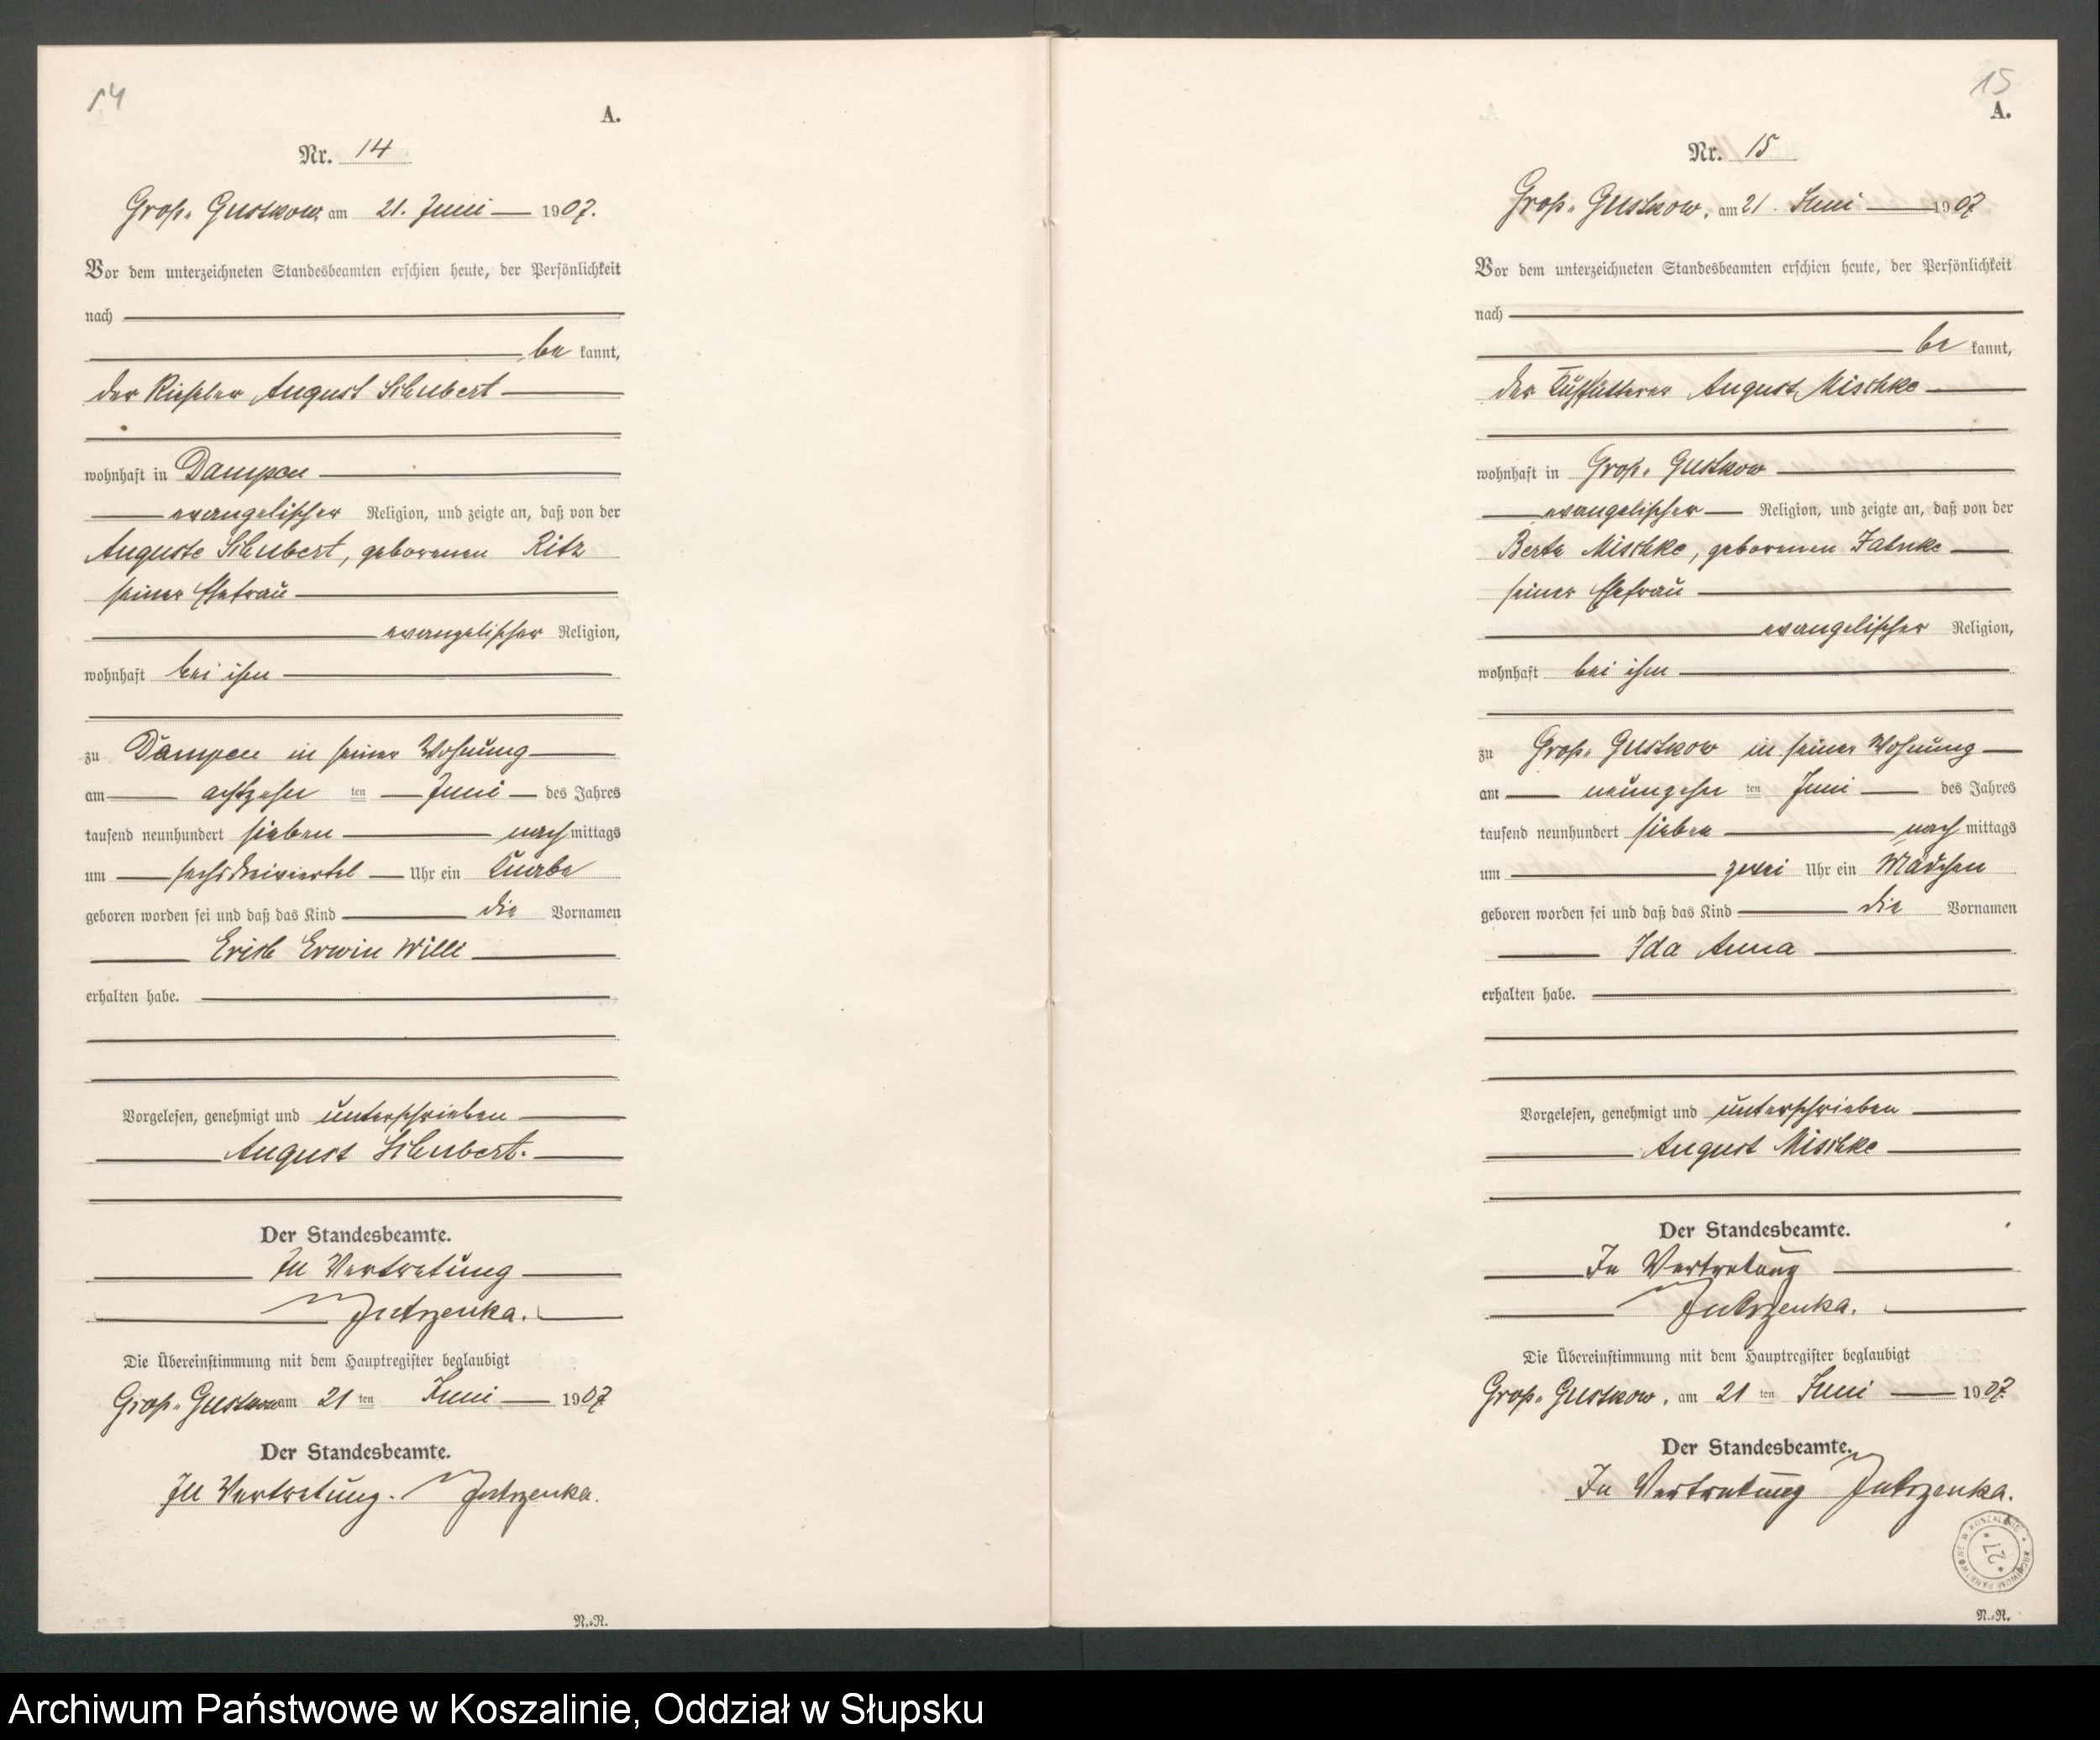 14
A.
Nr. 14
Groß-Gustkow am 21. Juni 1907.
Vor dem unterzeichneten Standesbeamten erschien heute, der Persönlichkeit
nach
be kannt,
der Rieseler August Schubert
wohnhaft in Dampen
evangelischer Religion, und zeigte an, daß von der
Auguste Schubert, geborenen Ritz
seiner Ehefrau
evangelischer Religion,
wohnhaft bei ihm
zu Dampen in seiner Wohnung
am achtzehn ten Juni des Jahres
tausend neunhundert sieben nach mittags
um sechsdreiviertel Uhr ein Knabe
geboren worden sei und daß das Kind die Vornamen
Erich Erwin Willi
erhalten habe.
Vorgelesen, genehmigt und unterschrieben
August Schubert.
Der Standesbeamte.
In Vertretung
Jutrzenka.
Die Übereinstimmung mit dem Hauptregister beglaubigt
Groß-Gustkow am 21 ten Juni 1907
Der Standesbeamte.
In Vertretung. Jutrzenka.
N.=N.
15
A.
Nr. 15
Groß-Gustkow, am 21. Juni 1907
Vor dem unterzeichneten Standesbeamten erschien heute, der Persönlichkeit
nach
be kannt,
der Kuhfütterer August Mischke
wohnhaft in Groß-Gustkow
evangelischer Religion, und zeigte an, daß von der
Berta Mischke, geborenen Jahnke
seiner Ehefrau
evangelischer Religion,
wohnhaft bei ihm
zu Groß-Gustkow in seiner Wohnung
am neunzehn ten Juni des Jahres
tausend neunhundert sieben nach mittags
um zwei Uhr ein Mädchen
geboren worden sei und daß das Kind die Vornamen
Ida Anna
erhalten habe.
Vorgelesen, genehmigt und unterschrieben
August Mischke
Der Standesbeamte.
In Vertretung
Jutrzenka.
Die Übereinstimmung mit dem Hauptregister beglaubigt
Groß-Gustkow, am 21 ten Juni 1907
Der Standesbeamte.
In Vertretung Jutrzenka.
ARCHIWUM PAŃSTWOWE W KOSZALINIE
* 27 *
N.=N.
Archiwum Państwowe w Koszalinie, Oddział w Słupsku